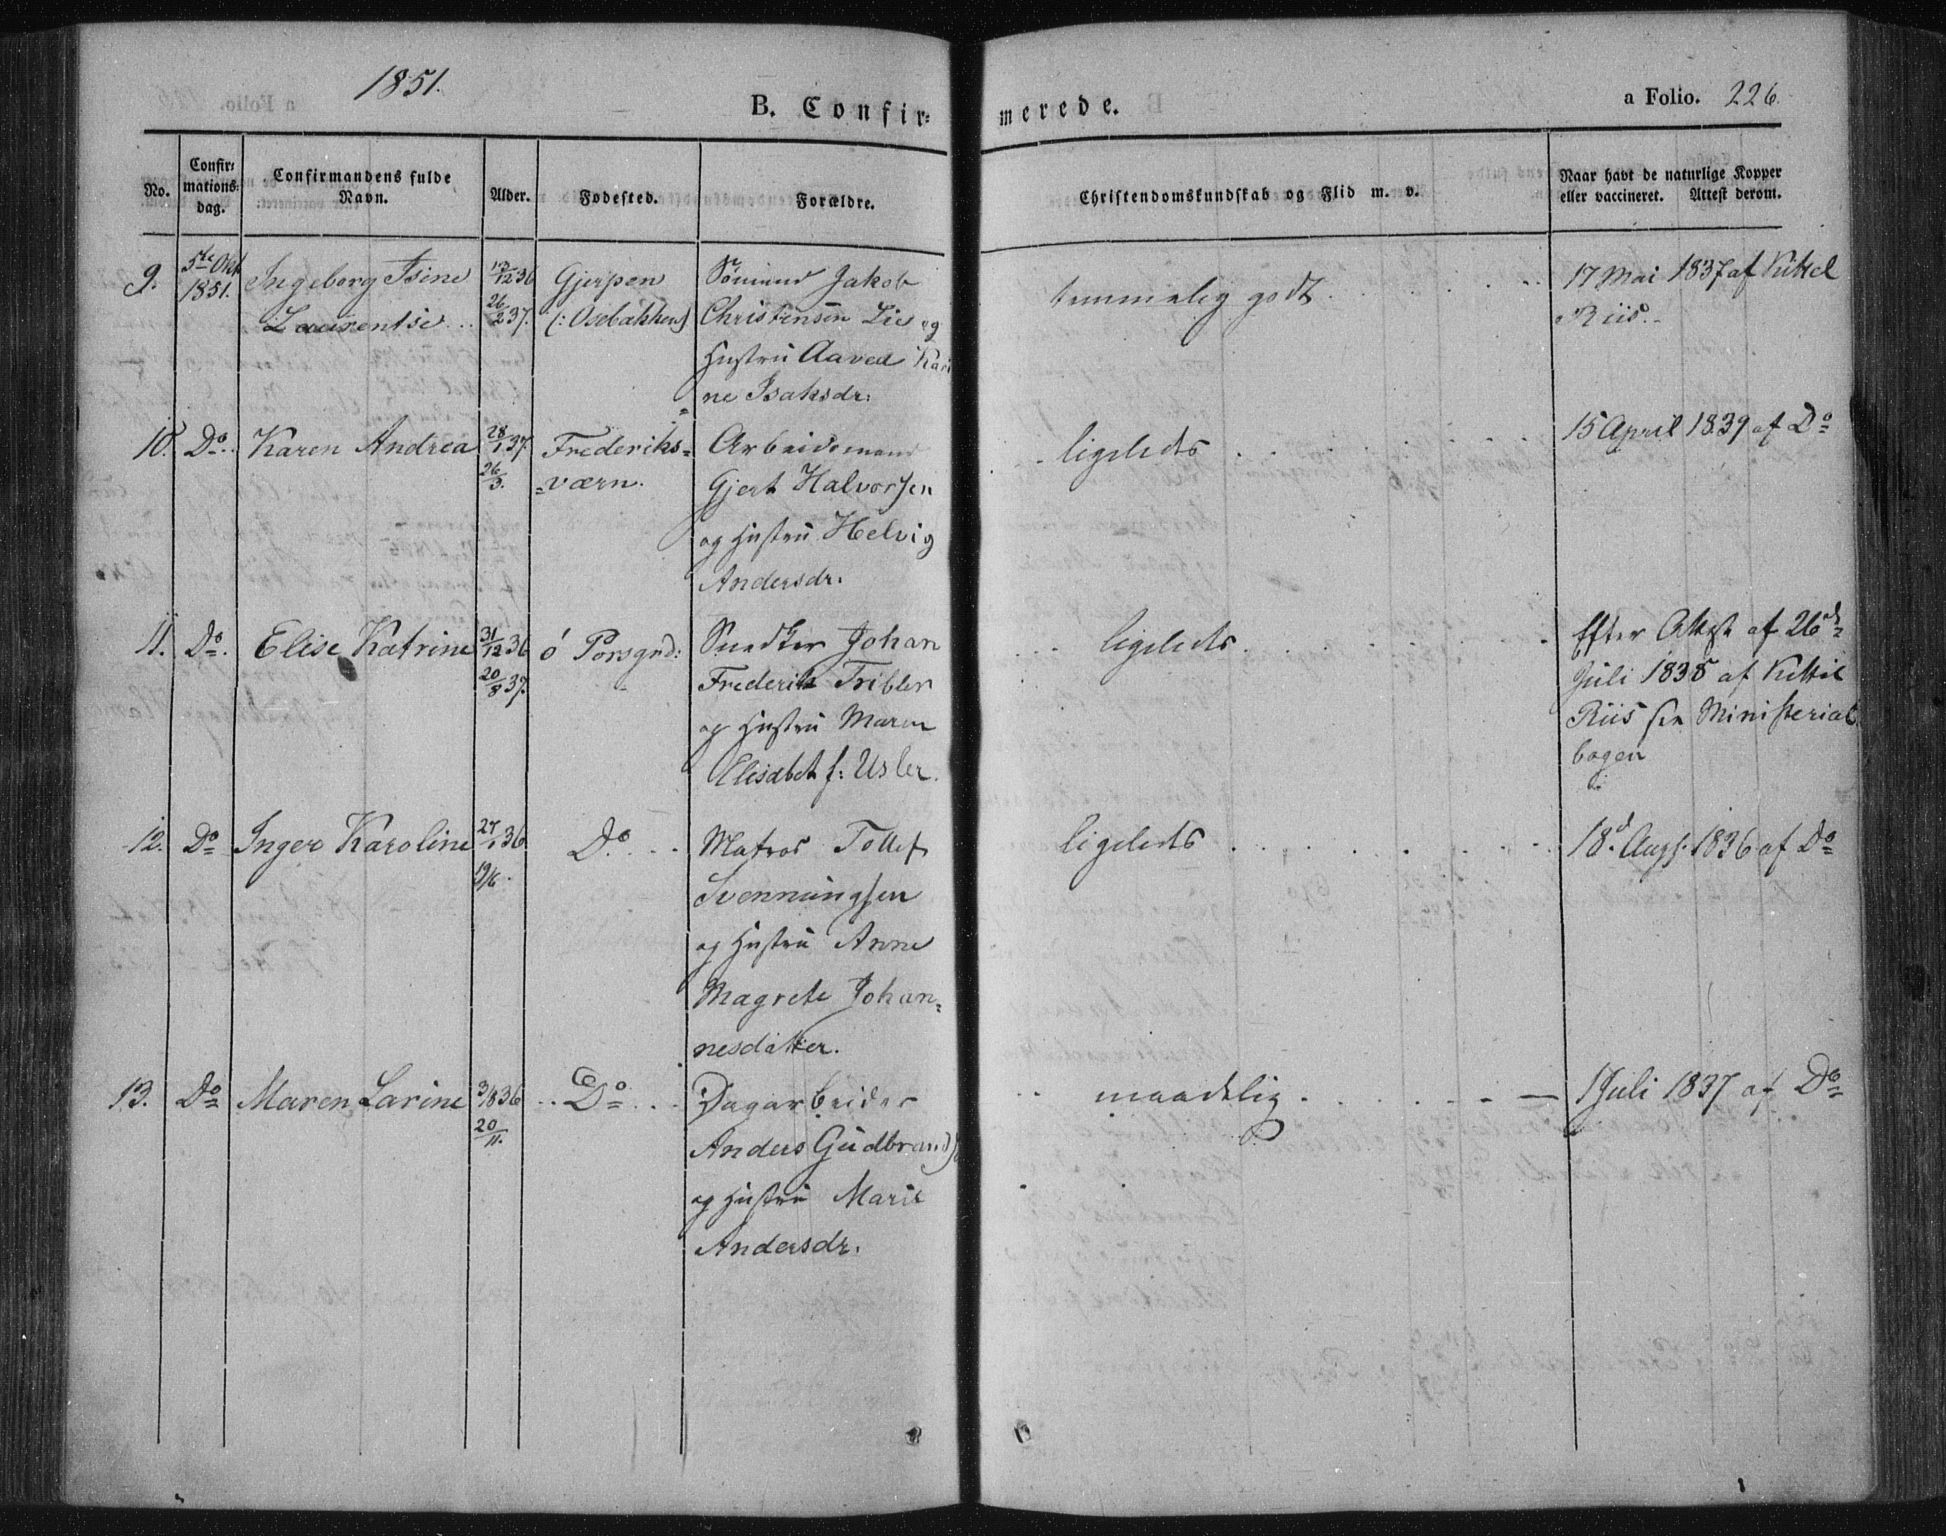 1851.
B. Confir=
merede.
a Folio. 226.
No.
Confir=
mations=
dag.
Confirmandens fulde
Navn.
Alder.
Fødested.
Forældre.
Christendomskundskab og Flid m. v.
Naar havt de naturlige Kopper
eller vaccineret. Attest derom.
9.
5te Okt
1851.
Ingeborg Isine
Laurentse
13/12 36
26/2 37.
Gjerpen
(: Osebakken)
Sömand Jakob
Christensen Lie og
Hustru Aaved Kari
ne Isaksdr:
temmelig godt
17 Mai 1837 af Kittel
Riis.
10.
Do
Karen Andrea
28/1 37.
26/3.
Frederiks=
=værn.
Arbeidsmand
Gjert Halvorsen
og Hustru Helvig
Andersdr.
ligeleds
15 April 1839 af Do
11.
Do.
Elise Katrine
31/12 36
20/8 37.
ö Porsgrd:
Snedker Johan
Frederik Tribler
og Hustru Maren
Elisabet f: Usler.
ligeleds
Efter Attest af 26de
Juli 1838 af Kittil
Riis sen Ministerial
bogen
12.
Do
Inger Karoline
27/1 36
19/6.
Do
Matros Tollef
Svenningsen
og Hustru Anne
Magrete Johan=
nesdatter.
ligeleds
18d. Augs. 1836 af Do
13.
Do
Maren Larine
3/8 36
20/11.
Do
Dagarbeider
Anders Gudbrands
og Hustru Marie
Andersdr.
maadelig
1 Juli 1837 af Do